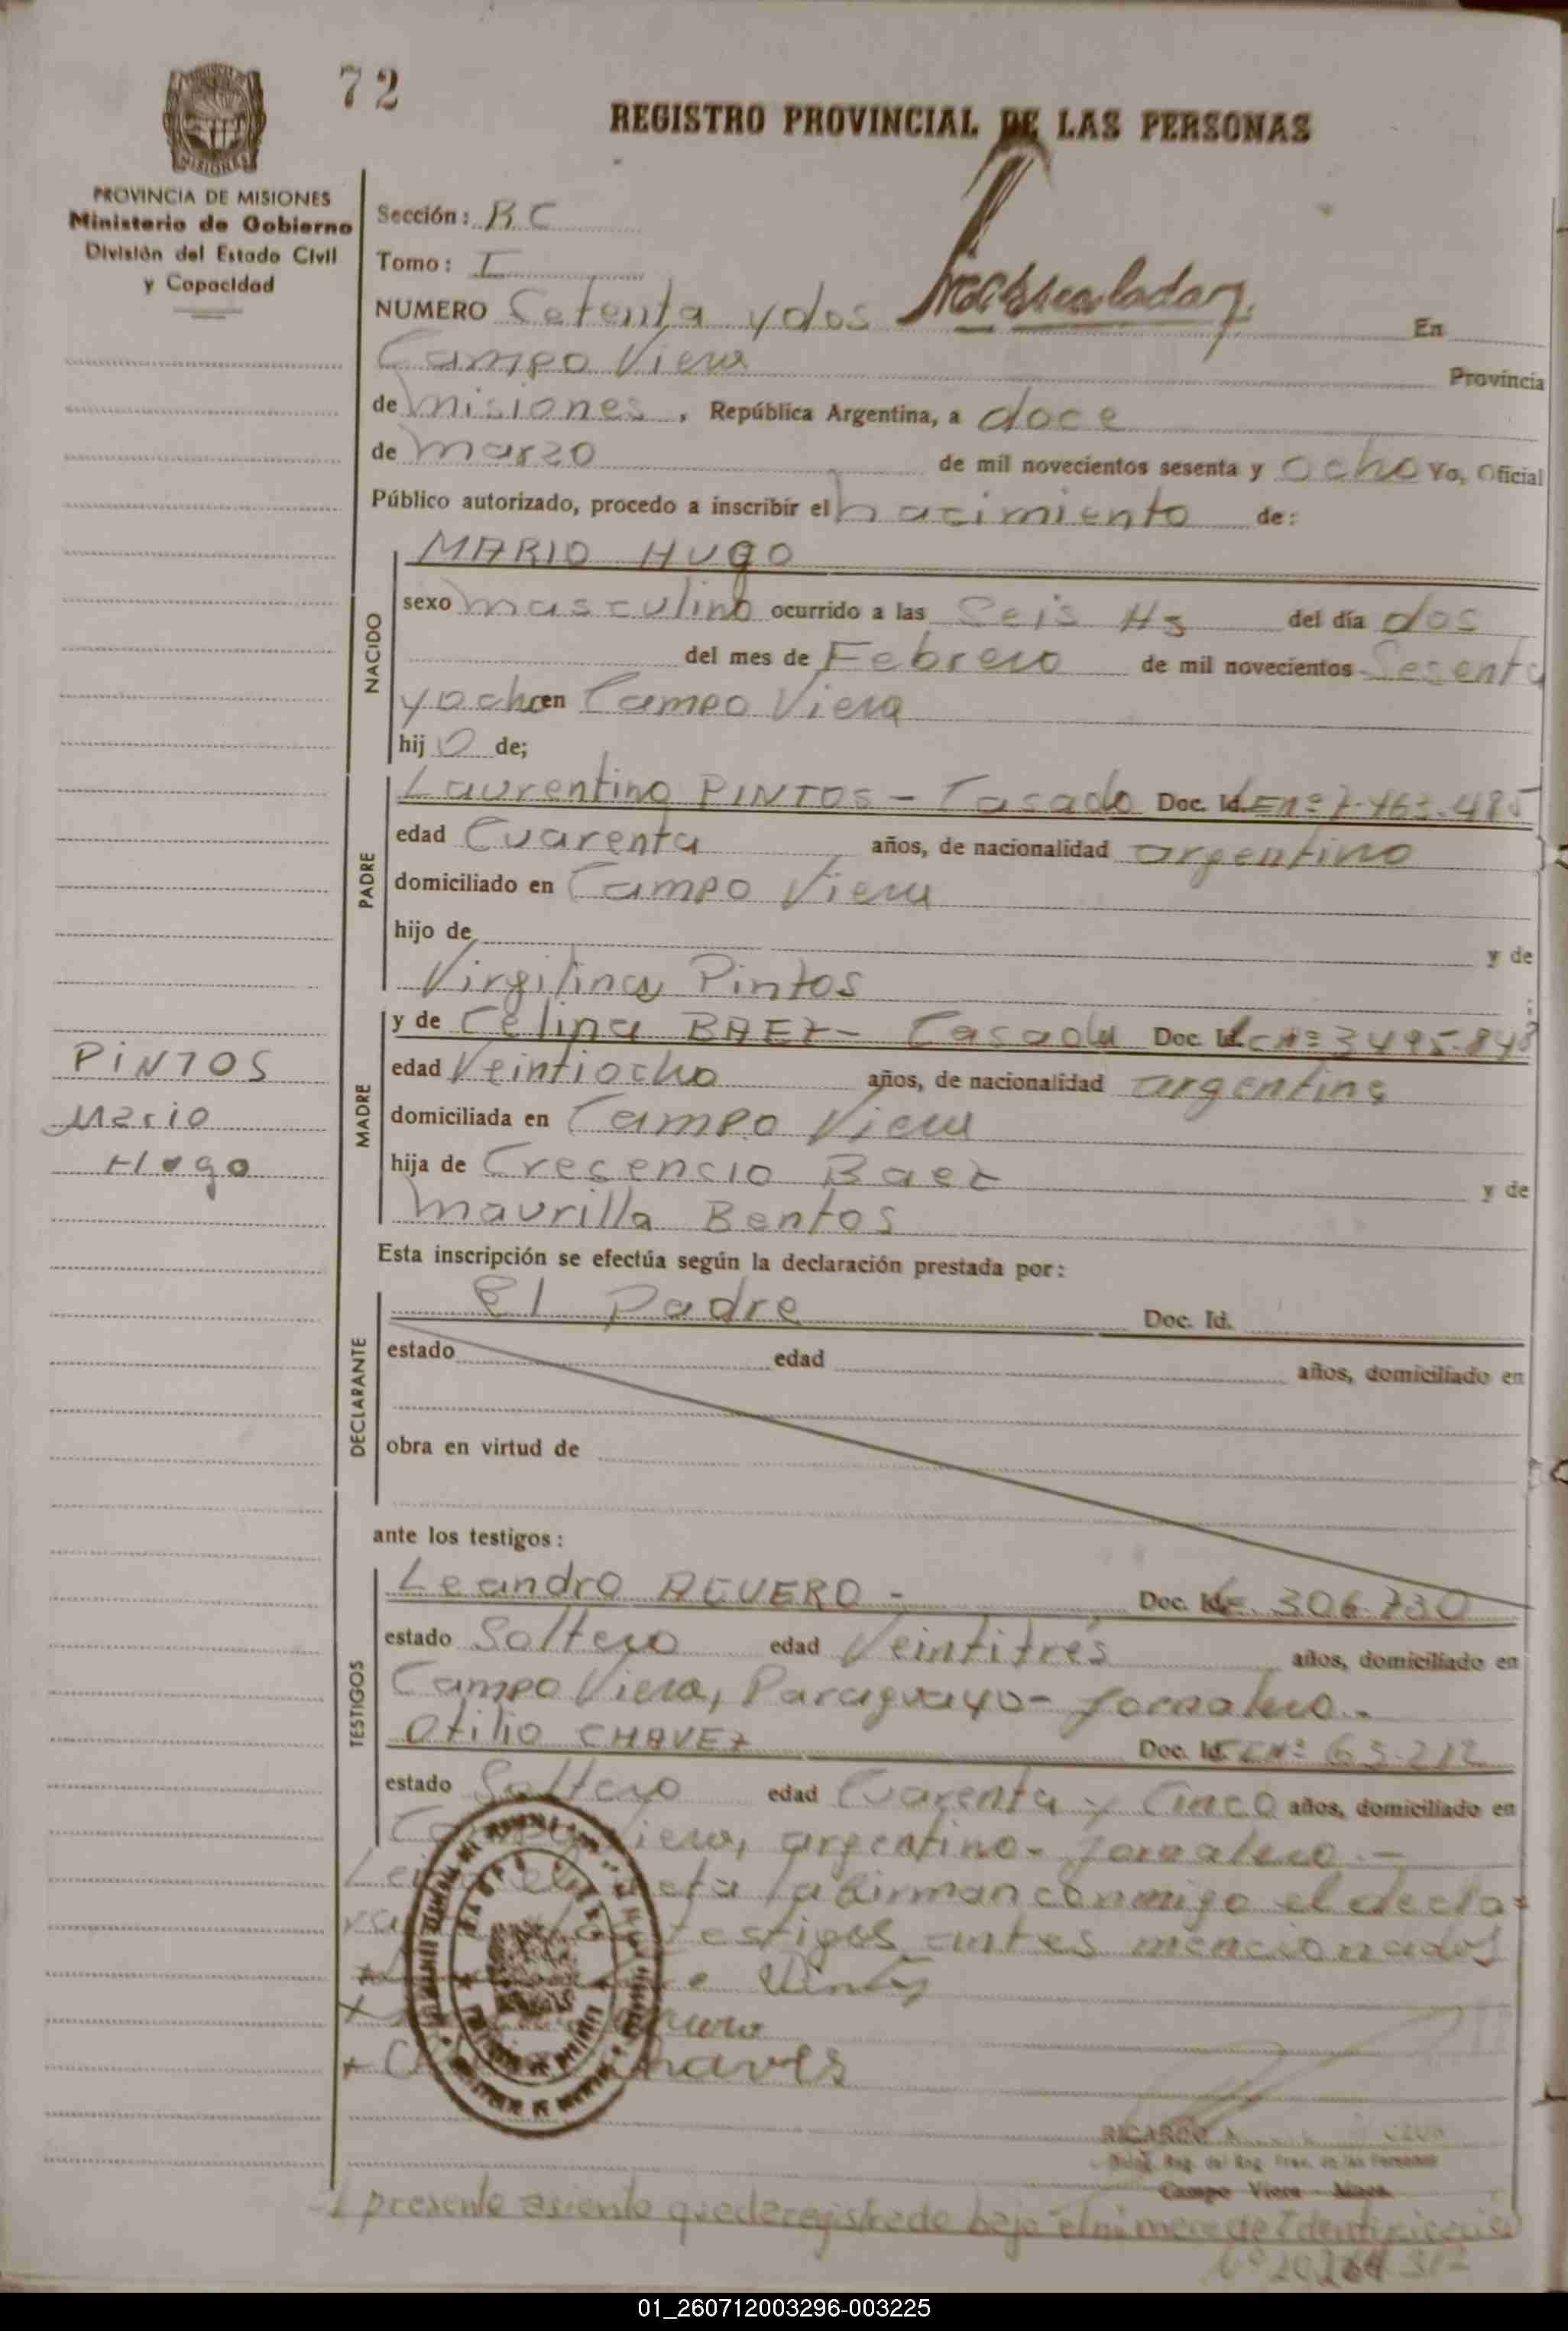 72
REGISTRO PROVINCIAL DE LAS PERSONAS
MISIONES
PROVINCIA DE MISIONES
Ministerio de Gobierno
División del Estado Civil
y Capacidad
Sección: RC
Tomo: I
NUMERO Setenta y dos En
Campo Viera Provincia
de misiones, República Argentina, a doce
de marzo de mil novecientos sesenta y ocho Yo, Oficial
Público autorizado, procedo a inscribir el nacimiento de:
NACIDO
MARIO HUgO
sexo masculino ocurrido a las Seis Hs del día dos
del mes de Febrero de mil novecientos Sesenta
y ocho en Campo Viera
hij o de;
PADRE
Laurentino PINTOS - Casado Doc. Id. LE nº 7.463.485
edad Cuarenta años, de nacionalidad argentino
domiciliado en Campo Viera
hijo de y de
Virgilina Pintos
MADRE
y de Celina BAEZ - Casada Doc. Id. LC Nº 3495.848
edad Veintiocho años, de nacionalidad argentina
domiciliada en Campo Viera
hija de Cresencio Baez y de
Maurilla Bentos
PINTOS
Mario
Hugo
Esta inscripción se efectúa según la declaración prestada por:
DECLARANTE
El Padre Doc. Id.
estado edad años, domiciliado en
obra en virtud de
ante los testigos:
TESTIGOS
Leandro AGUERO - Doc. Id. 306.730
estado Soltero edad Veintitrés años, domiciliado en
Campo Viera, Paraguayo - Jornalero.-
Otilio CHAVEZ Doc. Id. Nº 63.212
estado Soltero edad Cuarenta y Cinco años, domiciliado en
Viera, argentino - Jornalero.-
acta la firman conmigo el decla-
testigos antes mencionados
Chaves
RICARDO
Campo Viera - Mnes.
El presente asiento queda registrado bajo el número de Identificación
Nº 20.264.312
01_260712003296-003225